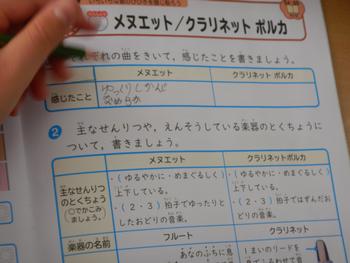 メヌエット/クラリネット ポルカ
それぞれの曲をきいて,感じたことを書きましょう。
メヌエット クラリネット ポルカ
感じたこと
2 主なせんりつや,えんそうしている楽器のとくちょうに
ついて,書きましょう。
メヌエット クラリネットポルカ
主なせんりつ
のとくちょう
○でかこみ
ましょう。
・(ゆるやかに・めまぐるしく)
上下している。
・(2・3)拍子でゆったりと
したおどりの音楽。
・(ゆるやかに・めまぐるしく)
上下している。
・(2・3)拍子ではずんだお
どりの音楽。
楽器の名前 フルート クラリネット
あなのふちに息
1まいのリードを